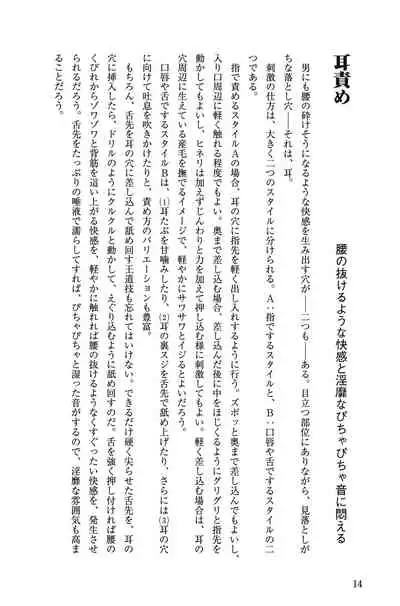 耳責め
腰の抜けるような快感と淫靡なぴちゃぴちゃ音に悶える
男にも腰の砕けそうになるような快感を生み出す穴が――二つも――ある。目立つ部位にありながら、見落としが
ちな落とし穴――それは、耳。
刺激の仕方は、大きく二つのスタイルに分けられる。A：指でするスタイルと、B：口唇や舌でするスタイルの二
つである。
指で責めるスタイルAの場合、耳の穴に指先を軽く出し入れするように行う。ズボッと奥まで差し込んでもよいし、
入り口周辺に軽く触れる程度でもよい。奥まで差し込む場合、差し込んだ後に中をほじくるようにグリグリと指先を
動かしてもよいし、ヒネリは加えずじんわりと力を加えて押し込む様に刺激してもよい。軽く差し込む場合は、耳の
穴周辺に生えている産毛を撫でるイメージで、軽やかにサワサワとイジるとよいだろう。
口唇や舌でするスタイルBは、(1)耳たぶを甘噛みしたり、(2)耳の裏スジを舌先で舐め上げたり、さらには(3)耳の穴
に向けて吐息を吹きかけたりと、責め方のバリエーションも豊富。
もちろん、舌先を耳の穴に差し込んで舐め回す王道技も忘れてはいけない。できるだけ硬く尖らせた舌先を、耳の
穴に挿入したら、ドリルのようにクルクルと動かして、えぐり込むように舐め回すのだ。舌を強く押し付ければ腰の
くびれからゾワゾワと背筋を這い上がる快感を、軽やかに触れれば腰の抜けるようなくすぐったい快感を、発生させ
られるだろう。舌先をたっぷりの唾液で濡らしてすれば、ぴちゃぴちゃと湿った音がするので、淫靡な雰囲気も高ま
ることだろう。
14